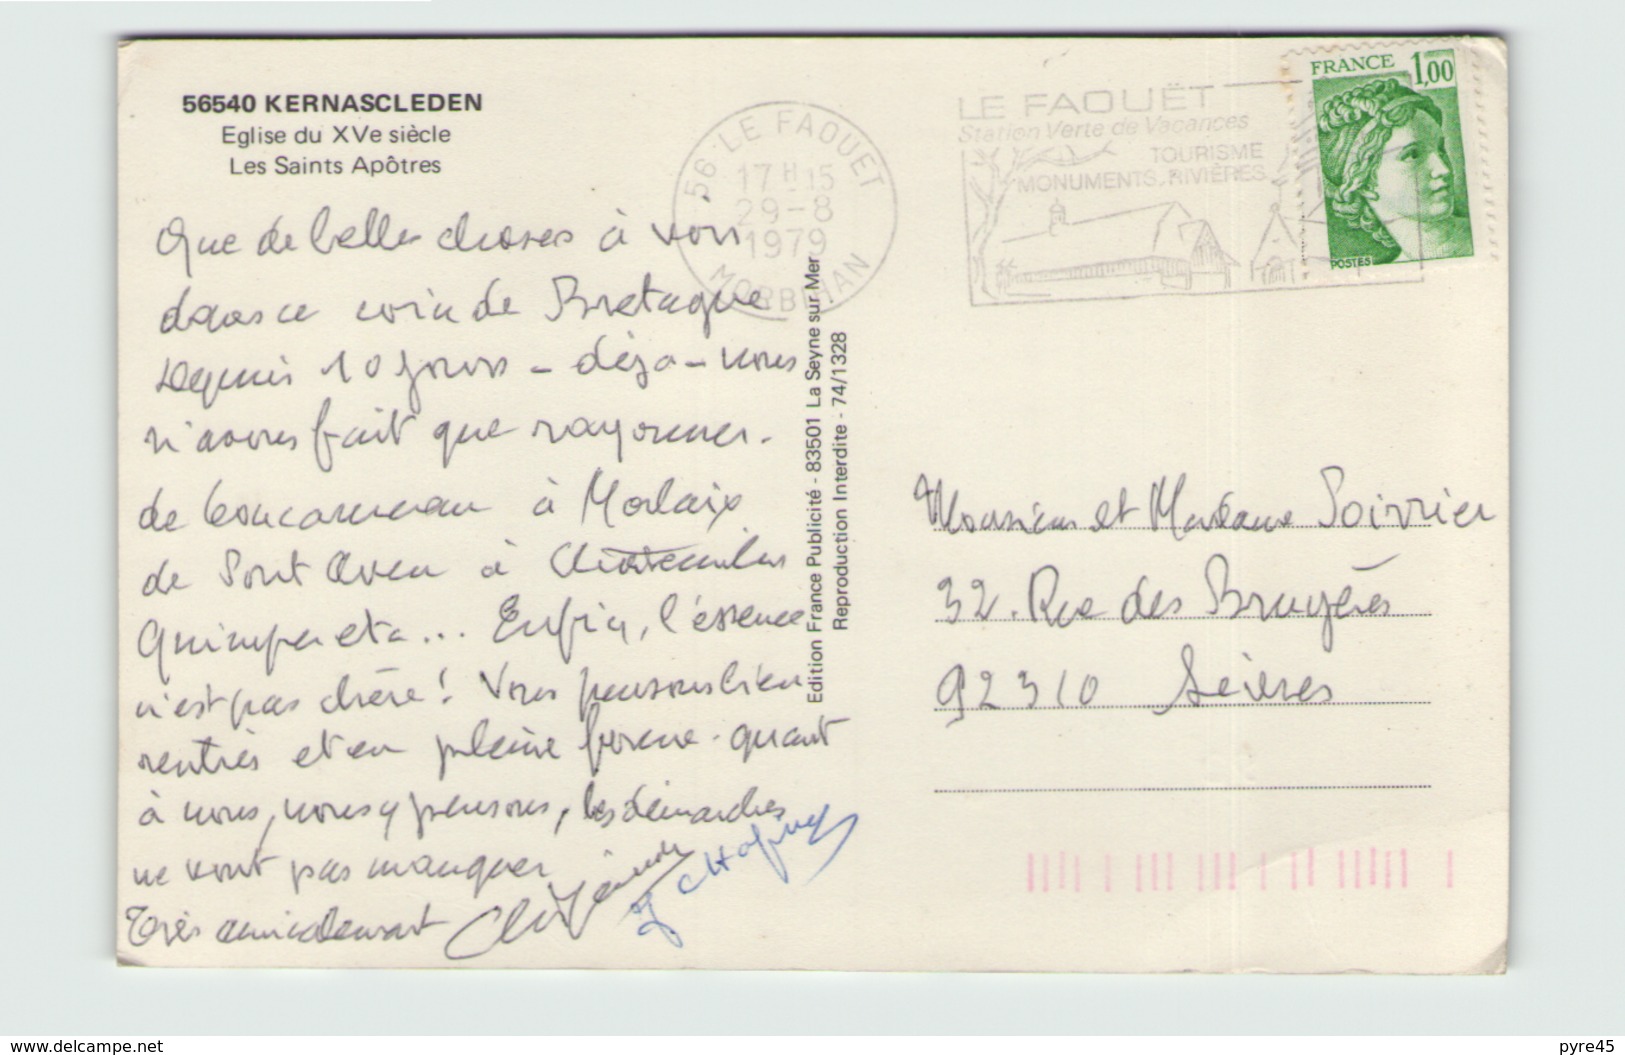 56540 KERNASCLEDEN
Eglise du XVe siècle
Les Saints Apôtres
Que de belles choses à voir
dans ce coin de Bretagne
Depuis 10 jours - déja - nous
n'avons fait que rayonner.
de Concarneau à Morlaix
de Pont Aven à
Quimper etc... Enfin, l'éssence
n'est pas chère! Vous pensons bien
rentrés et en pleine forme. quant
à nous, nous y pensons, les démarches
ne vont pas manquer
Très amicalement
Edition France Publicité - 83501 La Seyne sur Mer
Reproduction Interdite - 74/1328
56 LE FAOUET
17H15
29-8
1979
MORBIHAN
LE FAOUËT
Station Verte de Vacances
TOURISME
MONUMENTS, RIVIÈRES
FRANCE 1,00
POSTES
Monsieur et Madame Poirrier
32. Rue des Bruyères
92310 Sèvres
www.delcampe.net
pyre45